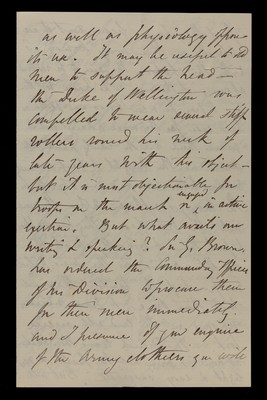 as well as physiology oppose
its use. It may be useful to old
men to support the head —
the Duke of Wellington was
compelled to wear several stiff
rollers round his neck of
late years with this object —
but it is most objectionable for
troops on the march or engaged in active
exertion. But what avails our
writing & speaking? Sir G. Brown
has ordered the Commanding Officers
of his Division to procure them
for their men immediately.
and I presume if you enquire
of the Army clothiers you will